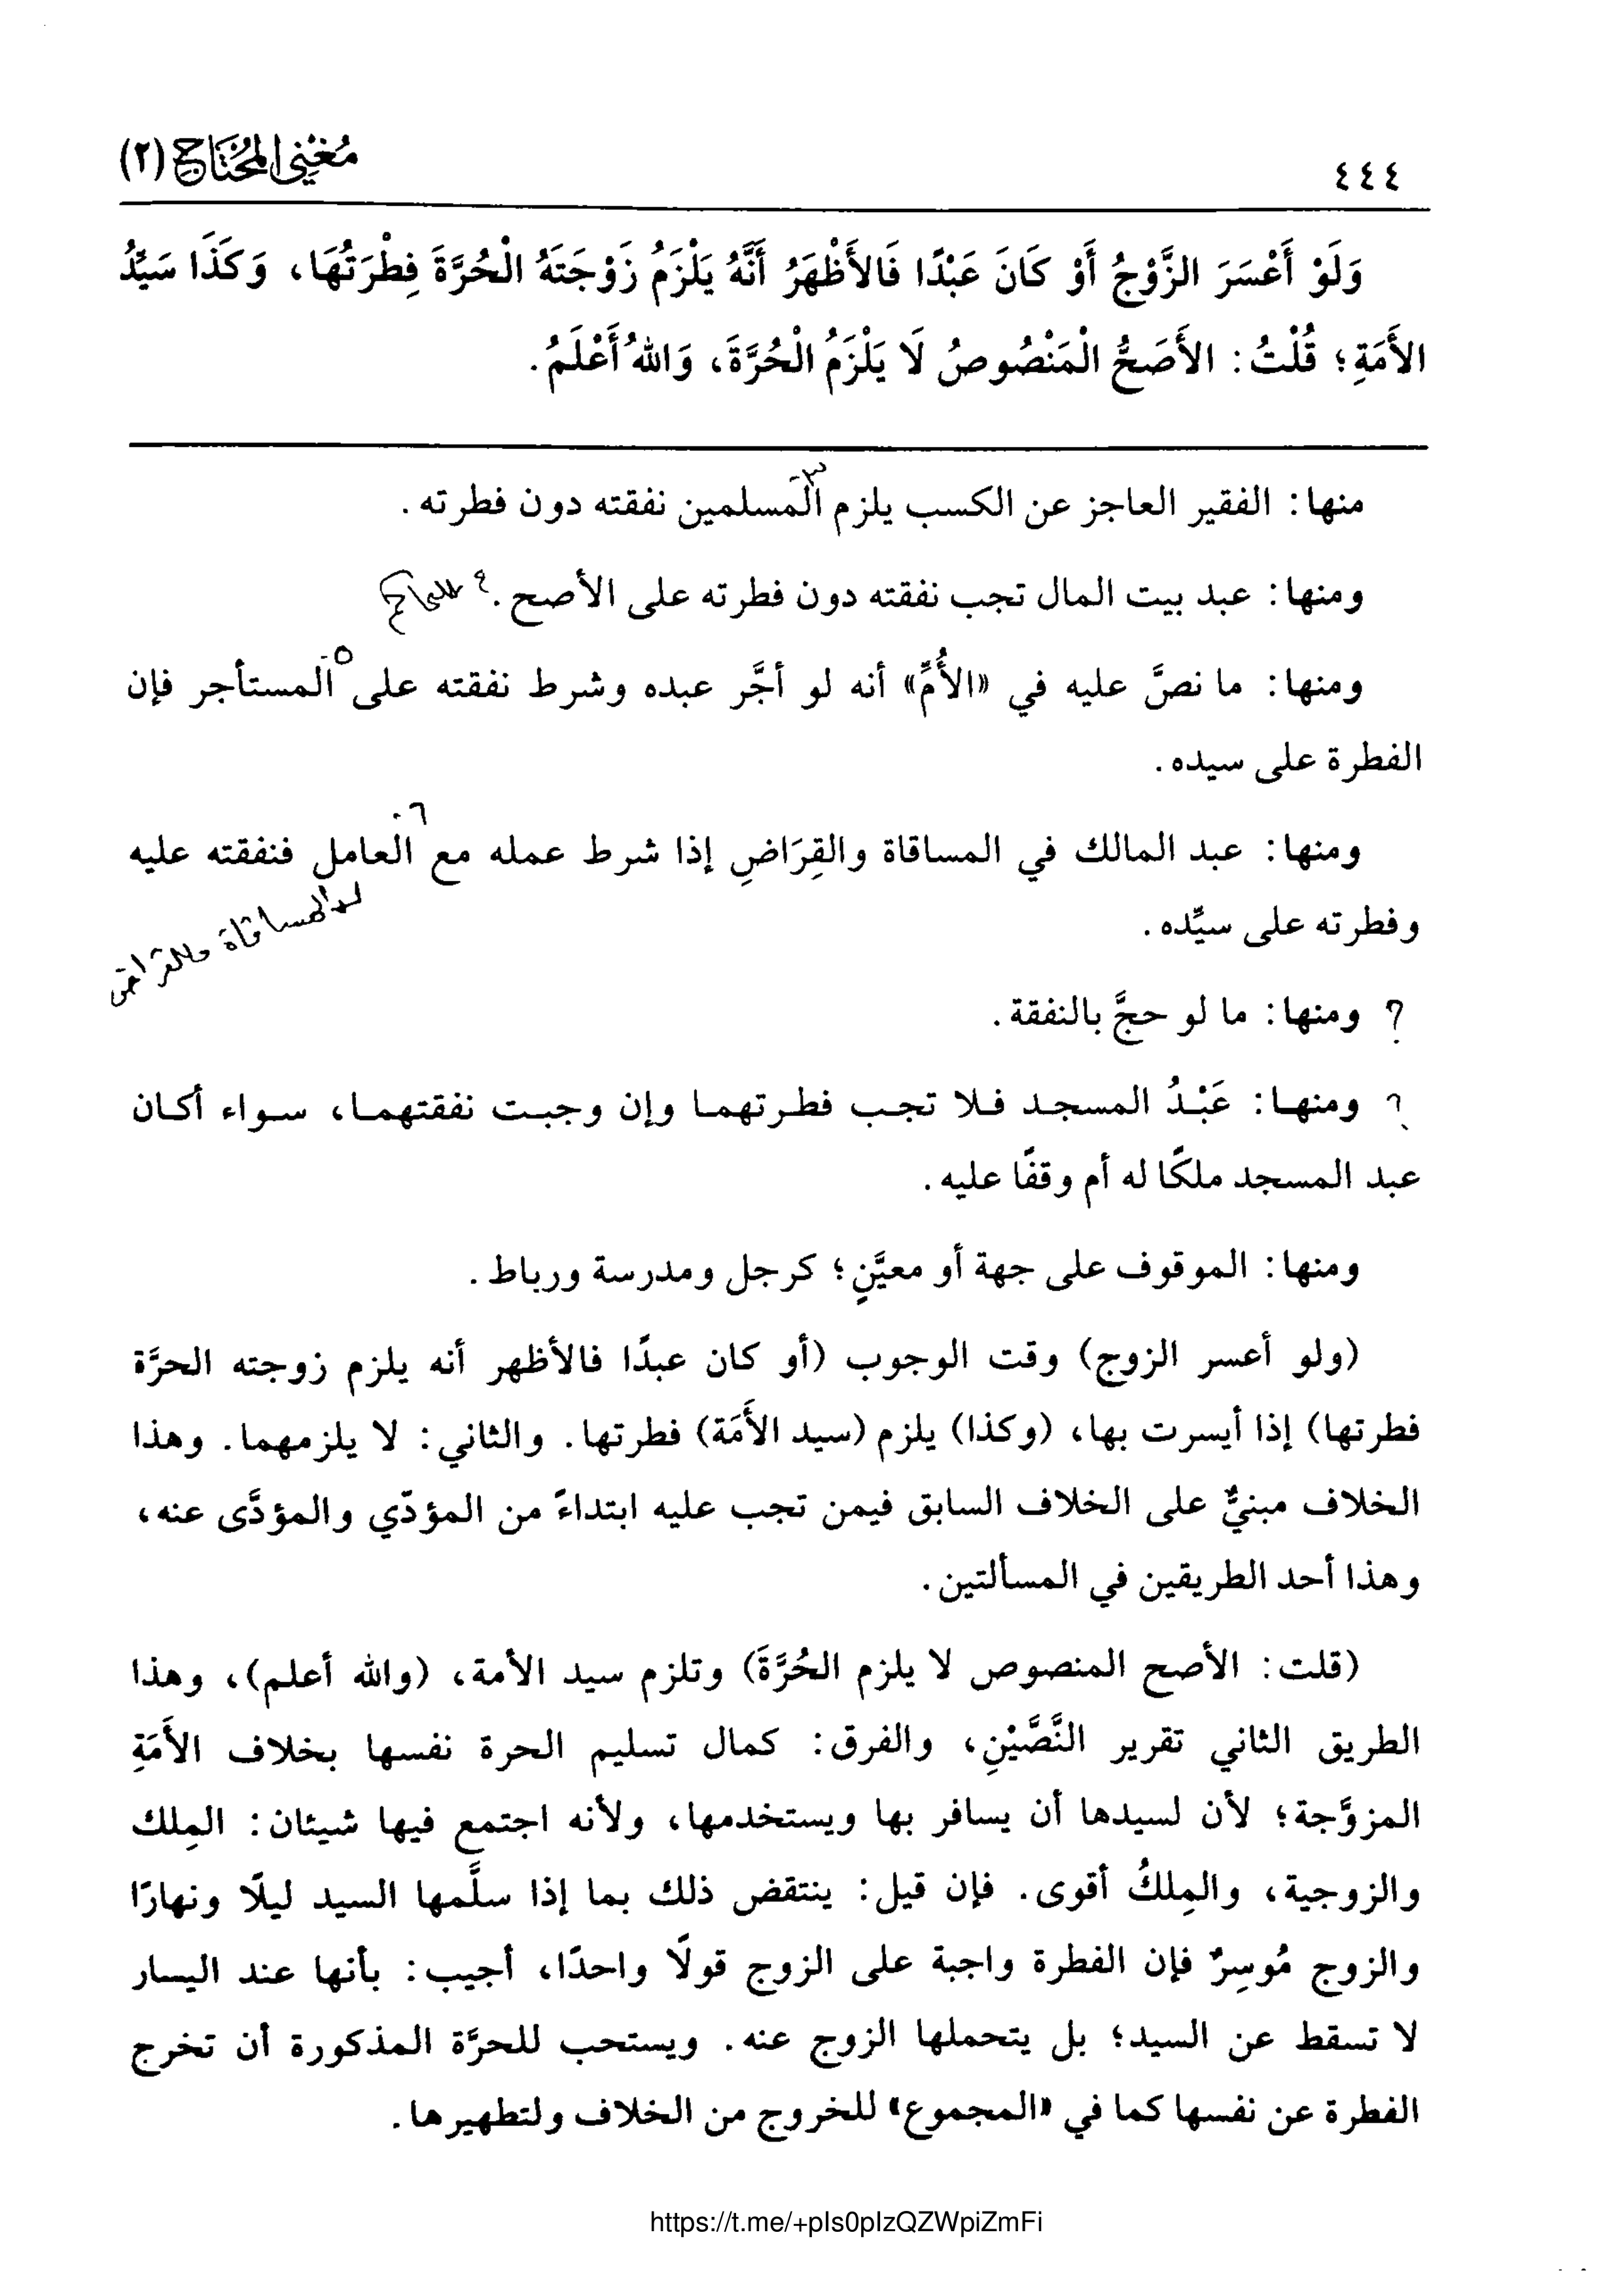 ٤٤٤
مُغْنِي المُحْتَاج (٢)
وَلَوْ أَعْسَرَ الزَّوْجُ أَوْ كَانَ عَبْدًا فَالأَظْهَرُ أَنَّهُ يَلْزَمُ زَوْجَتَهُ الْحُرَّةَ فِطْرَتُهَا، وَكَذَا سَيِّدُ
الأَمَةِ؛ قُلْتُ: الأَصَحُّ الْمَنْصُوصُ لَا يَلْزَمُ الْحُرَّةَ، وَاللهُ أَعْلَمُ.
٣-
منها: الفقير العاجز عن الكسب يلزم المسلمين نفقته دون فطرته.
ومنها: عبد بيت المال تجب نفقته دون فطرته على الأصح. ٤
٥-
ومنها: ما نصَّ عليه في «الأُمِّ» أنه لو أجَّر عبده وشرط نفقته على المستأجر فإن
الفطرة على سيده.
٦-
ومنها: عبد المالك في المساقاة والقِرَاضِ إذا شرط عمله مع العامل فنفقته عليه
وفطرته على سيِّده.
المساقاة والقراض
؟ ومنها: ما لو حجَّ بالنفقة.
؟ ومنها: عَبْدُ المسجد فلا تجب فطرتهما وإن وجبت نفقتهما، سواء أكان
عبد المسجد ملكًا له أم وقفًا عليه.
ومنها: الموقوف على جهة أو معيَّنٍ؛ كرجل ومدرسة ورباط.
(ولو أعسر الزوج) وقت الوجوب (أو كان عبدًا فالأظهر أنه يلزم زوجته الحرَّة
فطرتها) إذا أيسرت بها، (وكذا) يلزم (سيد الأَمَة) فطرتها. والثاني: لا يلزمهما. وهذا
الخلاف مبنيٌّ على الخلاف السابق فيمن تجب عليه ابتداءً من المؤدّي والمؤدَّى عنه،
وهذا أحد الطريقين في المسألتين.
(قلت: الأصح المنصوص لا يلزم الحُرَّةَ) وتلزم سيد الأمة، (والله أعلم)، وهذا
الطريق الثاني تقرير النَّصَّيْنِ، والفرق: كمال تسليم الحرة نفسها بخلاف الأَمَةِ
المزوَّجة؛ لأن لسيدها أن يسافر بها ويستخدمها، ولأنه اجتمع فيها شيئان: المِلك
والزوجية، والمِلكُ أقوى. فإن قيل: ينتقض ذلك بما إذا سلَّمها السيد ليلًا ونهارًا
والزوج مُوسِرٌ فإن الفطرة واجبة على الزوج قولًا واحدًا، أجيب: بأنها عند اليسار
لا تسقط عن السيد؛ بل يتحملها الزوج عنه. ويستحب للحرَّة المذكورة أن تخرج
الفطرة عن نفسها كما في «المجموع» للخروج من الخلاف ولتطهيرها.
https://t.me/+pIs0pIzQZWpiZmFi